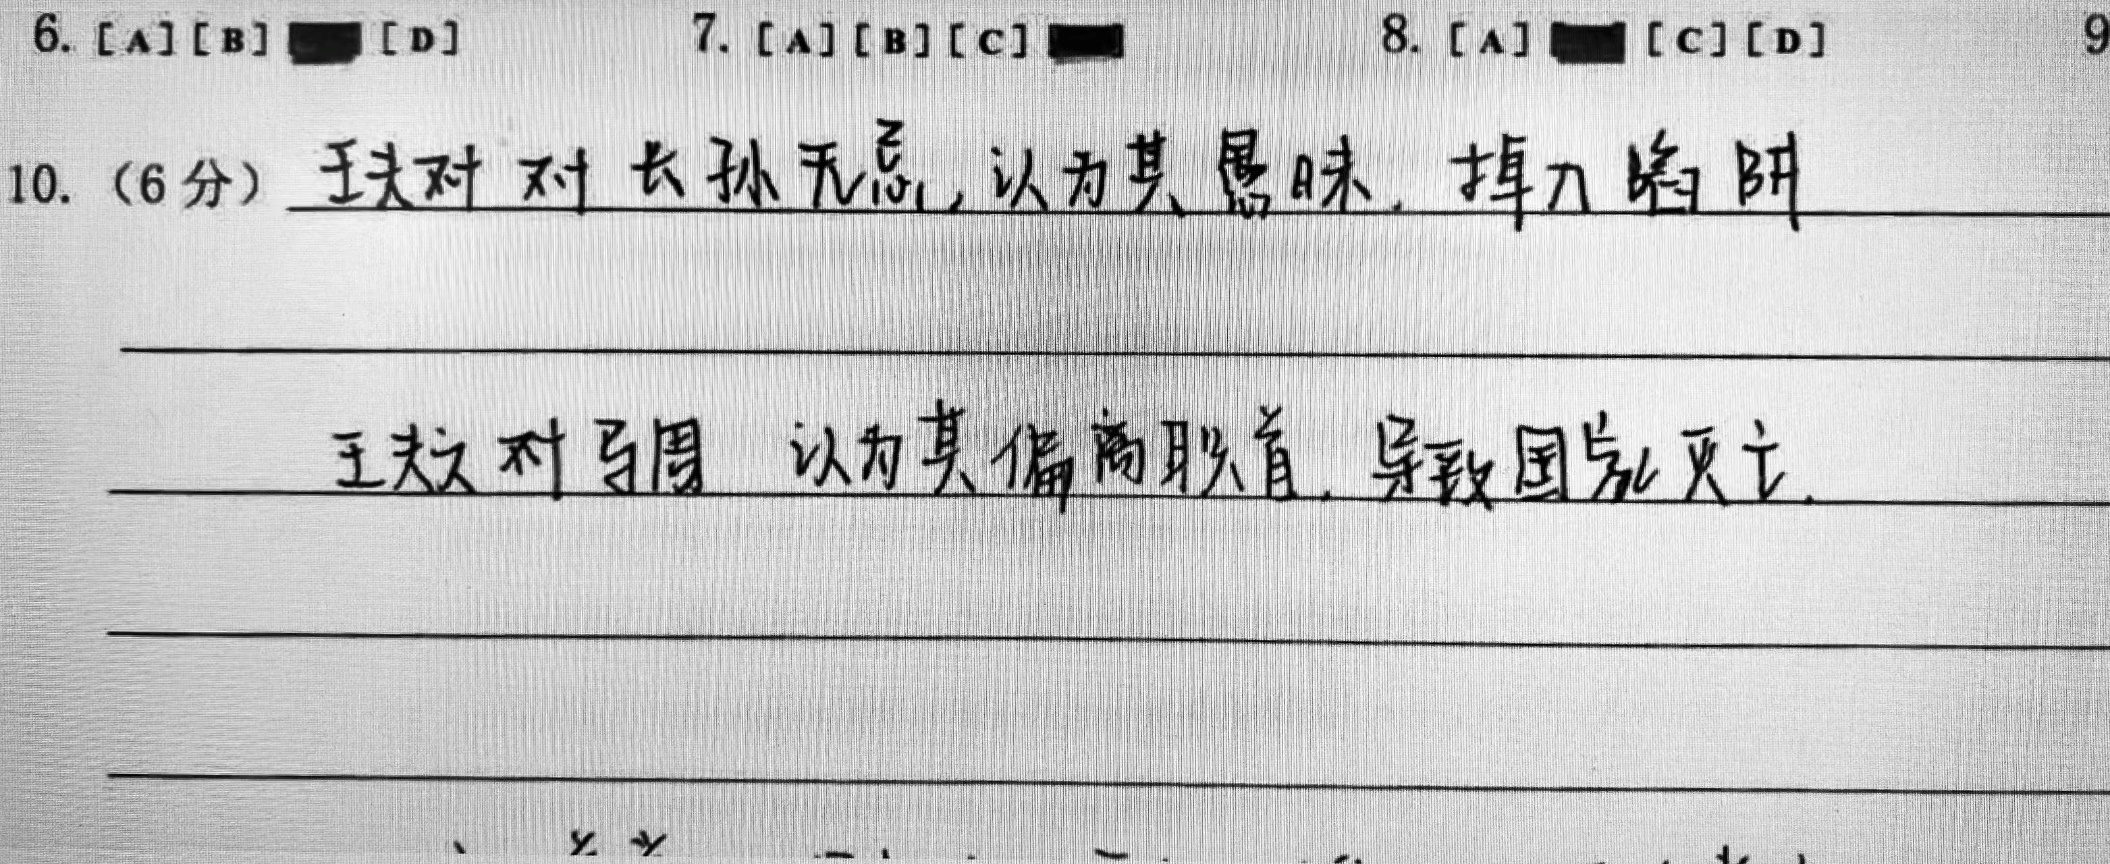 6. [A] [B] [D] 7. [A] [B] [C] 8. [A] [C] [D] 9
10. (6分) 王夫对 对长孙无忌,认为其愚昧.掉入陷阱
王夫之对马周 认为其偏离职责.导致国家灭亡.